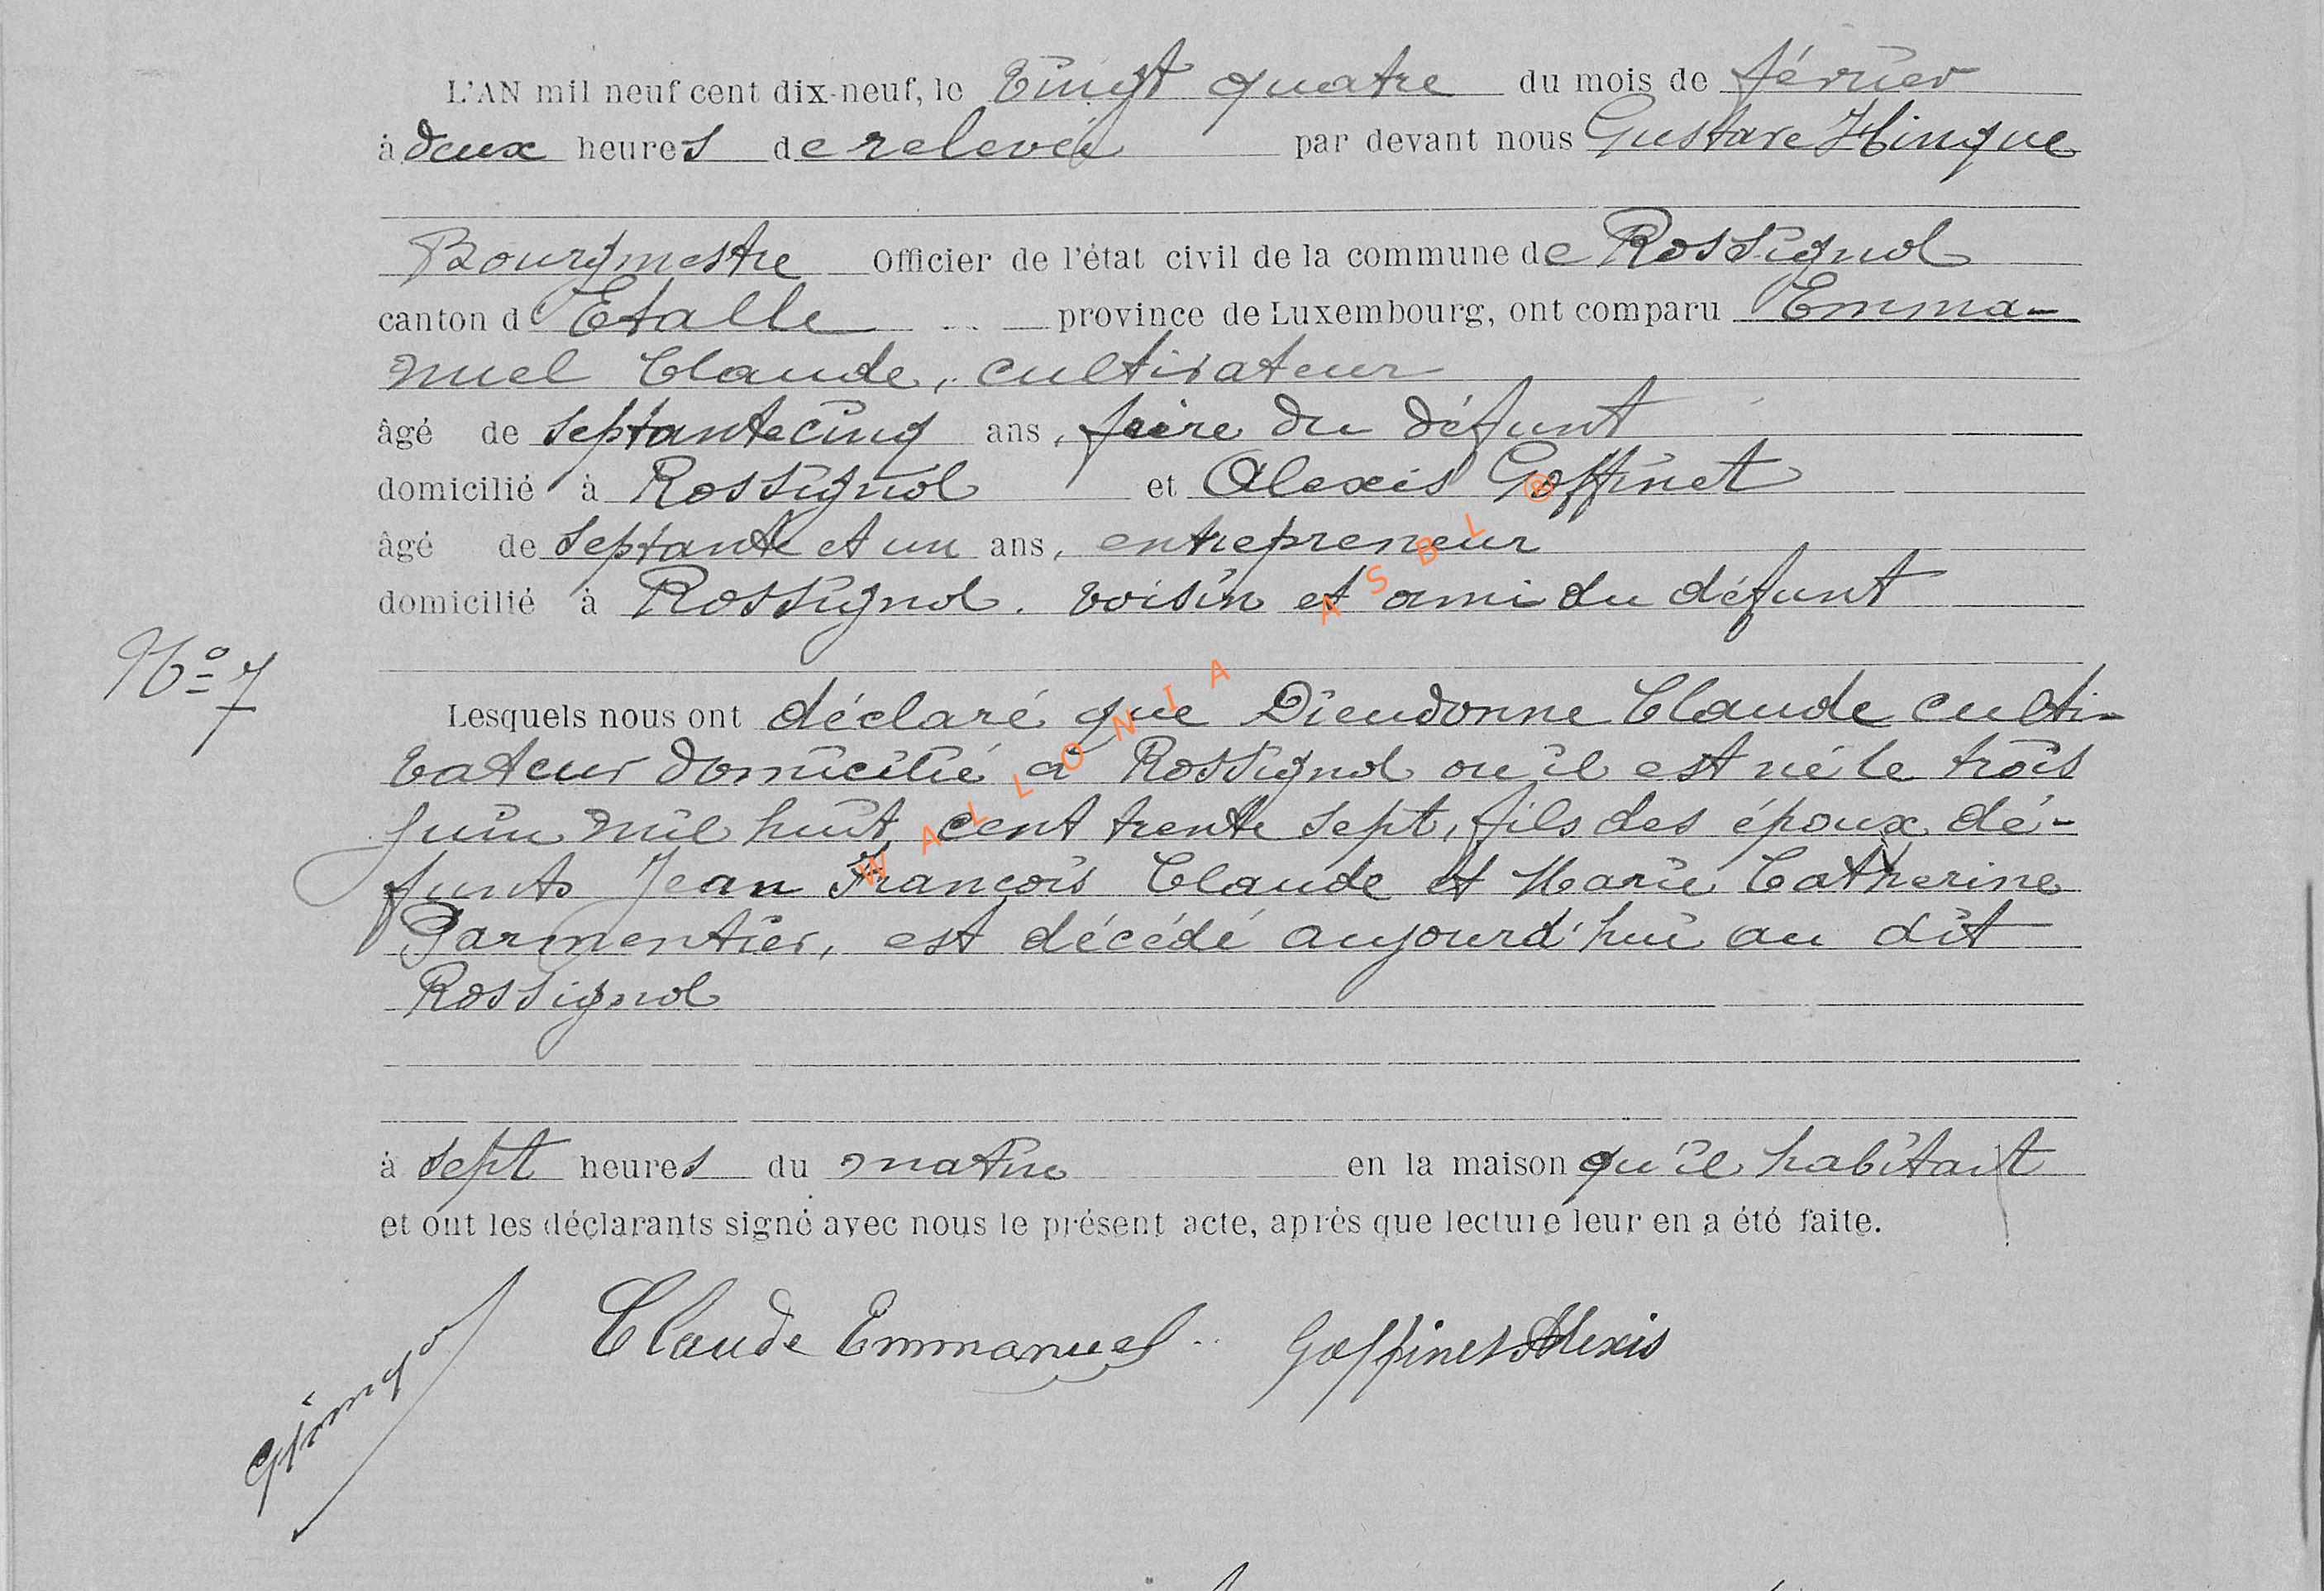 L'AN mil neuf cent dix-neuf, le Vingt quatre du mois de février
à deux heures de relevée par devant nous Gustave Hinque
Bourgmestre Officier de l'état civil de la commune de Rossignol
canton d'Etalle province de Luxembourg, ont comparu Emma-
nuel Claude, cultivateur
âgé de septantecinq ans, frère du défunt
domicilié à Rossignol et Alexis Goffinet
âgé de septante et un ans, entrepreneur
domicilié à Rossignol. voisin et ami du défunt
N° 7
Lesquels nous ont déclaré que Dieudonne Claude culti-
vateur domicilié à Rossignol où il est né le trois
juin mil huit cent trente sept, fils des époux dé-
funts Jean François Claude et Marie Catherine
Parmentier, est décédé aujourd'hui au dit
Rossignol
à sept heures du matin en la maison qu'il habitait
et ont les déclarants signé avec nous le présent acte, après que lecture leur en a été faite.
Claude Emmanuel Goffinet Alexis
WALLONIA ASBL ®